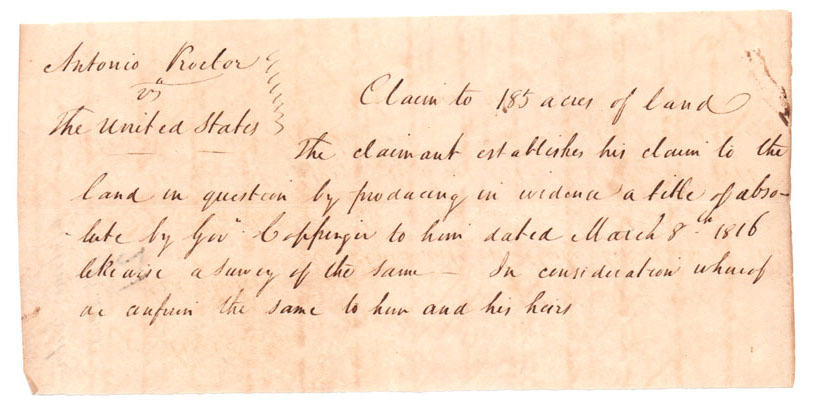 Antonio Proctor
vs
The United States
Claim to 185 acres of land
The claimant establishes his claim to the
land in question by producing in evidence a title of abso-
lute by Govr Coppinger to him dated March 8th 1816
likewise a survey of the same — In consideration whereof
we confirm the same to him and his heirs